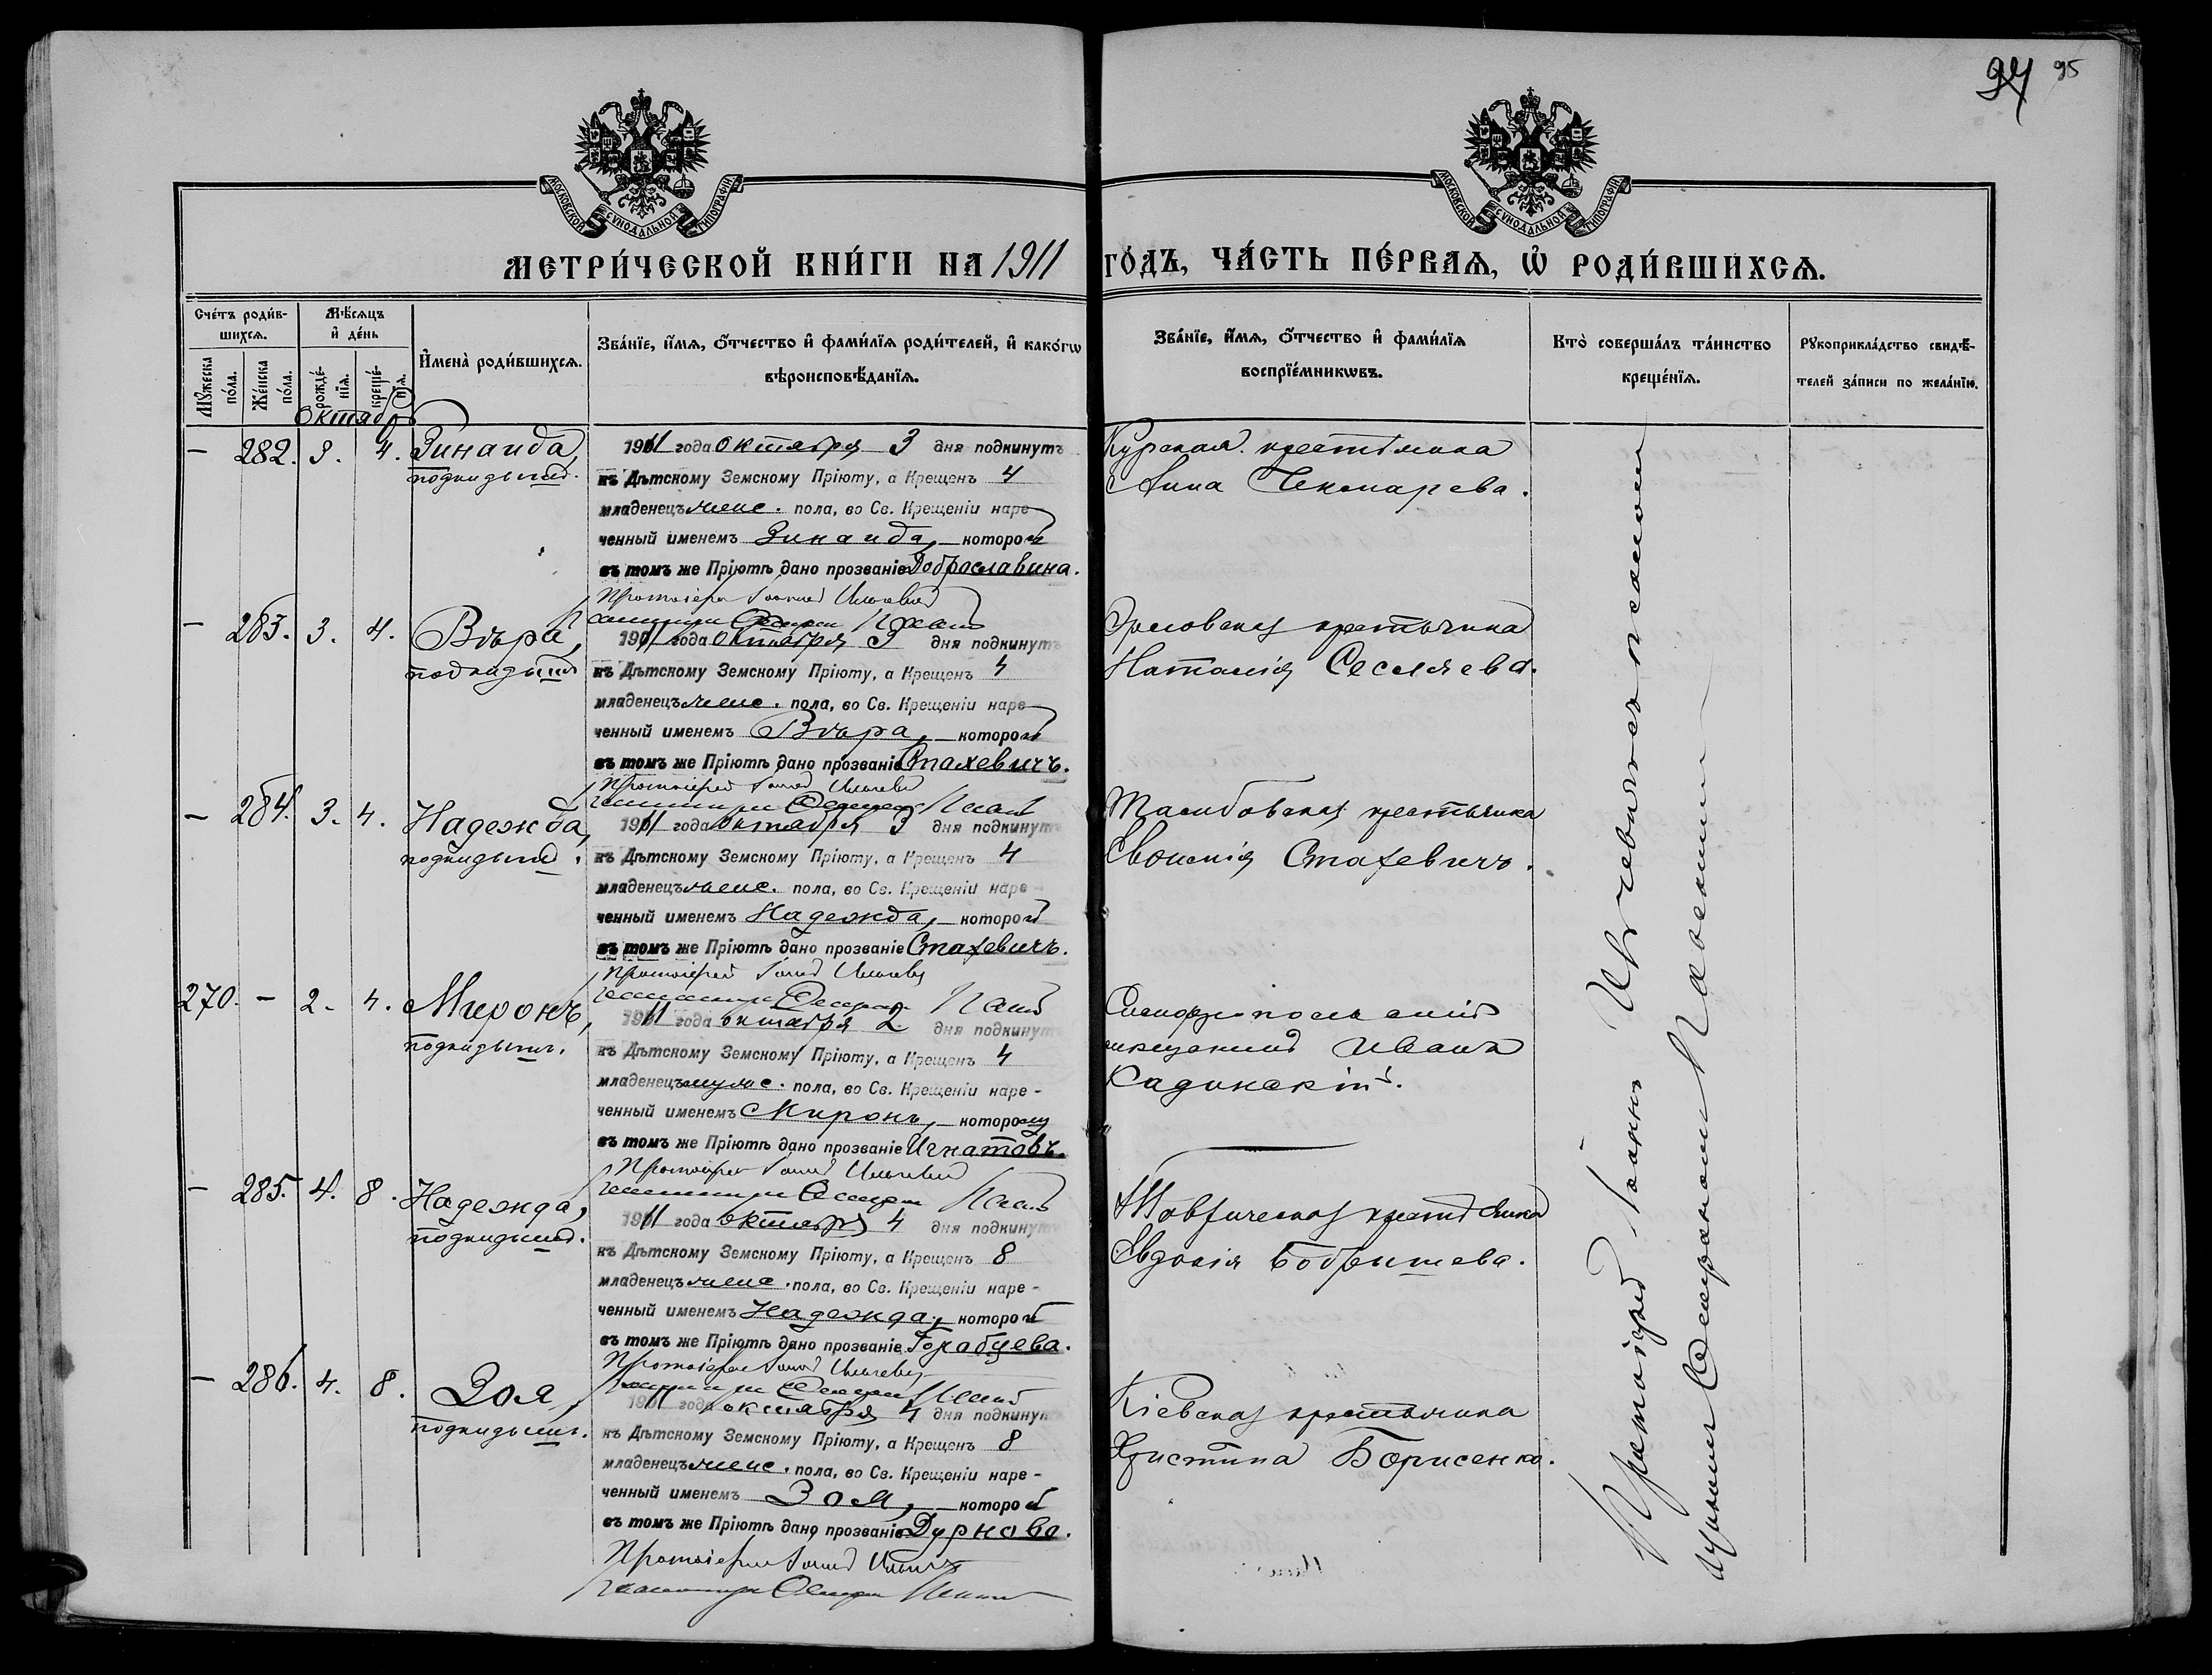 95
МОСКОВСКОЙ СУНОДАЛЬНОЙ ТИПОГРАФІИ
МОСКОВСКОЙ СУНОДАЛЬНОЙ ТИПОГРАФІИ
МЕТРИ́ЧЕСКОЙ КНИ́ГИ НА 1911
ГО́ДЪ, ЧА́СТЬ ПЕ́РВАЯ, Ѡ РОДИ́ВШИХСЯ.
Сче́тъ роди́в-
шихся.
Мѣ́сяцъ
и де́нь
Мꙋ́жеска по́ла.
Же́нска по́ла.
рожде́-
нїя.
креще́-
нїя.
Имена̀ роди́вшихся.
Зва́нїе, и́мя, о́тчество и фами́лїя роди́телей, и како́гѡ
вѣроисповѣ́данїя.
Зва́нїе, и́мя, о́тчество и фами́лїя
воспрїе́мникѡвъ.
Кто̀ соверша́лъ та́инство
креще́нїя.
Рꙋкоприкла́дство свидѣ́-
телей за́писи по жела́нїю.
Октябрь
— 282. 3. 4. Зинаида,
подкидышъ.
1911 года октября 3 дня подкинутъ
къ Дѣтскому Земскому Пріюту, а Крещенъ 4
младенецъ женс. пола, во Св. Крещеніи наре-
ченный именемъ Зинаида, — которой
въ томъ же Пріютѣ дано прозваніе Доброславина.
Протоіерей Іоаннъ
Курская крестьянка
Анна Чекмарева.
— 283. 3. 4. Вѣра,
подкидышъ
1911 года октября 3 дня подкинутъ
къ Дѣтскому Земскому Пріюту, а Крещенъ 4
младенецъ женс. пола, во Св. Крещеніи наре-
ченный именемъ Вѣра, — которой
въ томъ же Пріютѣ дано прозваніе Стахевичъ.
Протоіерей Іоаннъ
Орловская крестьянка
Наталія Сесляева.
— 284. 3. 4. Надежда,
подкидышъ.
1911 года октября 3 дня подкинутъ
къ Дѣтскому Земскому Пріюту, а Крещенъ 4
младенецъ женс. пола, во Св. Крещеніи наре-
ченный именемъ Надежда, — которой
въ томъ же Пріютѣ дано прозваніе Стахевичъ.
Протоіерей Іоаннъ
крестьянка
Стахевичъ.
270. — 2. 4. Миронъ,
подкидышъ.
1911 года октября 2 дня подкинутъ
къ Дѣтскому Земскому Пріюту, а Крещенъ 4
младенецъ мужс. пола, во Св. Крещеніи наре-
ченный именемъ Миронъ, — которому
въ томъ же Пріютѣ дано прозваніе Игнатовъ.
Протоіерей Іоаннъ
Симферопольскій
мѣщанинъ Иванъ
Кадинскій.
— 285. 4. 8. Надежда,
подкидышъ.
1911 года октября 4 дня подкинутъ
къ Дѣтскому Земскому Пріюту, а Крещенъ 8
младенецъ женс. пола, во Св. Крещеніи наре-
ченный именемъ Надежда, — которой
въ томъ же Пріютѣ дано прозваніе Горобцева.
Протоіерей Іоаннъ
Таврическая крестьянка
Евдокія Бобрышева.
— 286. 4. 8. Зоя,
подкидышъ.
1911 года октября 4 дня подкинутъ
къ Дѣтскому Земскому Пріюту, а Крещенъ 8
младенецъ женс. пола, во Св. Крещеніи наре-
ченный именемъ Зоя, — которой
въ томъ же Пріютѣ дано прозваніе Дурнова.
Протоіерей Іоаннъ
Кіевская крестьянка
Христина Борисенко.
Протоіерей Іоаннъ съ псаломщ